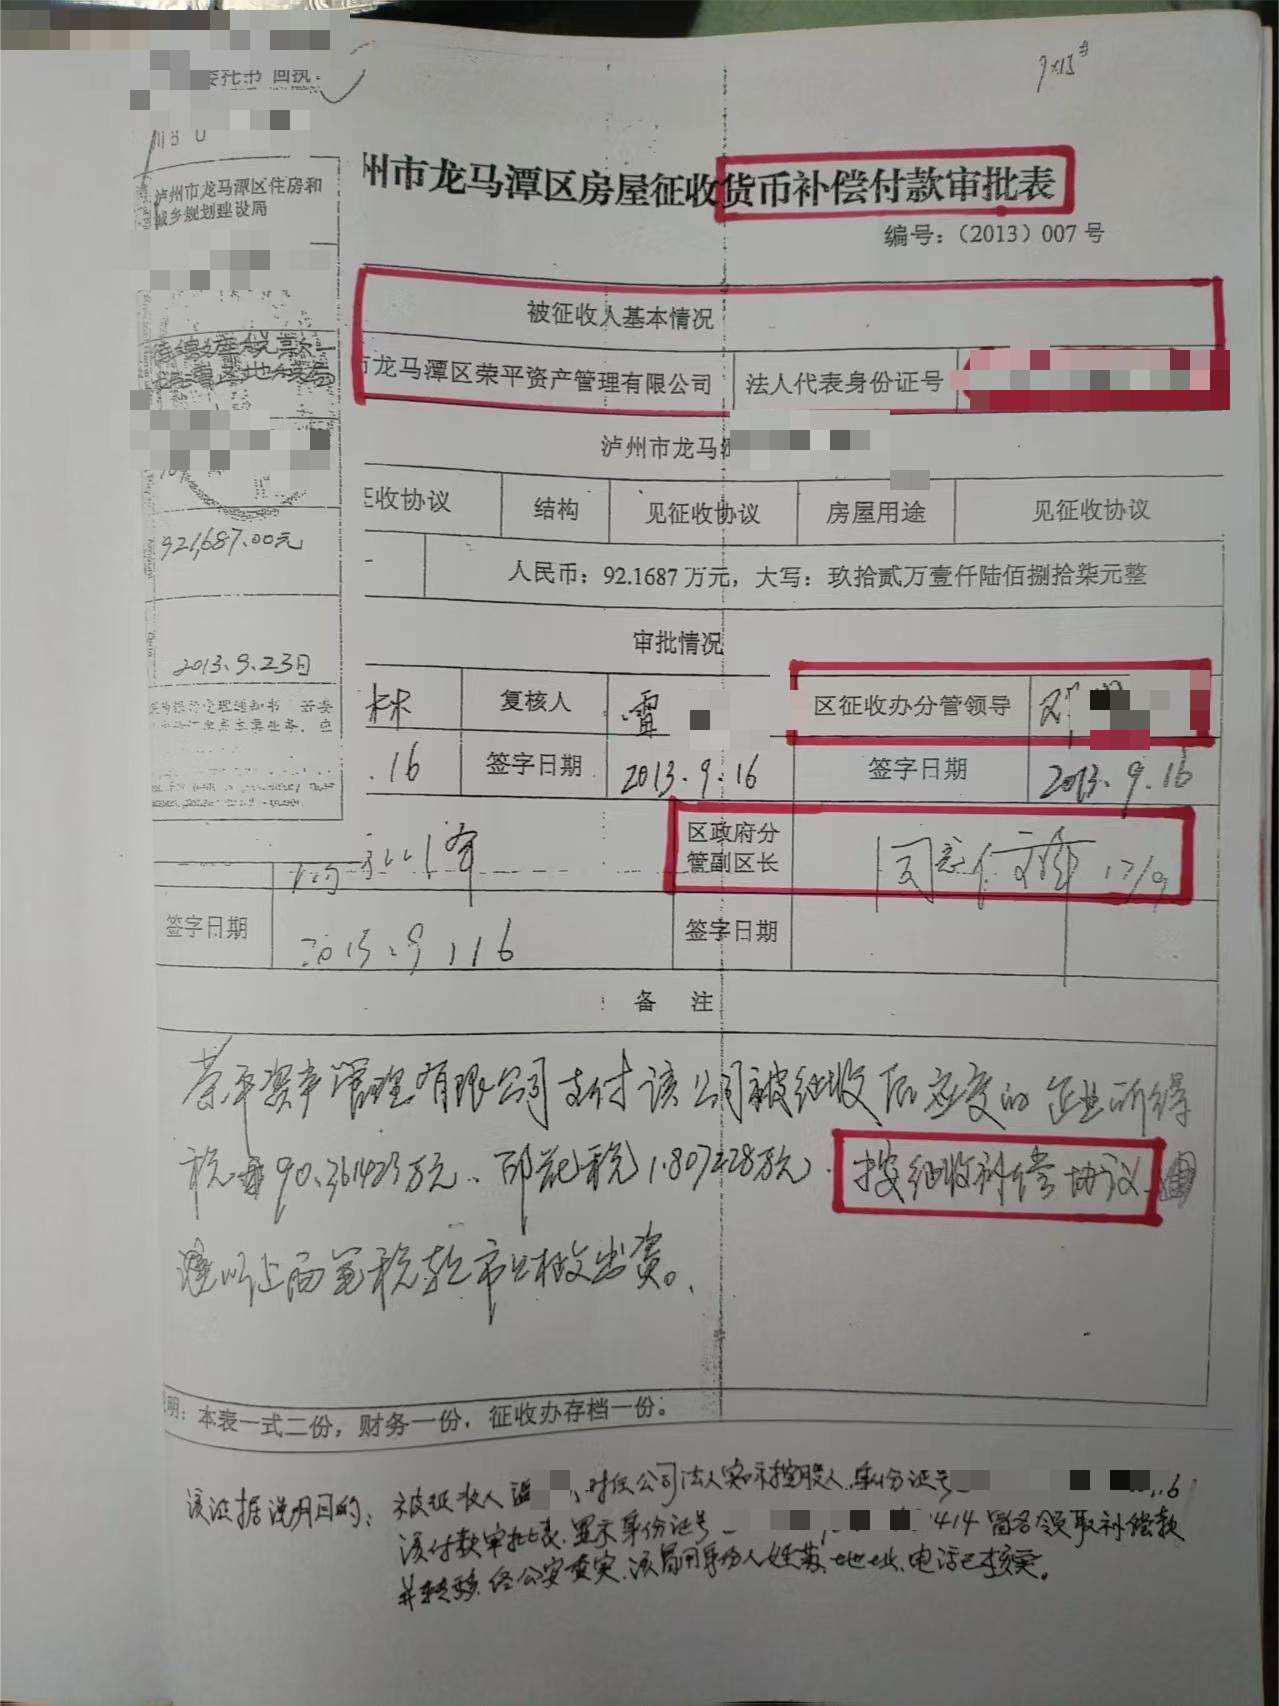 委托书 回执：
9×13#
泸州市龙马潭区住房和
城乡规划建设局
州市龙马潭区房屋征收货币补偿付款审批表
编号：（2013）007 号
被征收人基本情况
市龙马潭区荣平资产管理有限公司 法人代表身份证号
泸州市龙马潭
征收协议 结构 见征收协议 房屋用途 见征收协议
921,687.00元
人民币：92.1687 万元，大写：玖拾贰万壹仟陆佰捌拾柒元整
审批情况
2013.9.23日
林 复核人 雷 区征收办分管领导 邓
.16 签字日期 2013.9.16 签字日期 2013.9.16
区政府分
管副区长
同意 17/9
签字日期 2013.9.16 签字日期
备 注
荣平资产管理有限公司支付该公司被征收后应交的企业所得
税 90.361423万元、印花税1.807228万元. 按征收补偿协议
以上两笔税款市公投出资。
明：本表一式二份，财务一份，征收办存档一份。
该证据说明目的：被征收人温 时任公司法人实际控股人.身份证号 16
该付款审批表.显示身份证号 1414冒名领取补偿款
并转移.经公安查实.该冒用身份人姓蒋.地址.电话已核实。